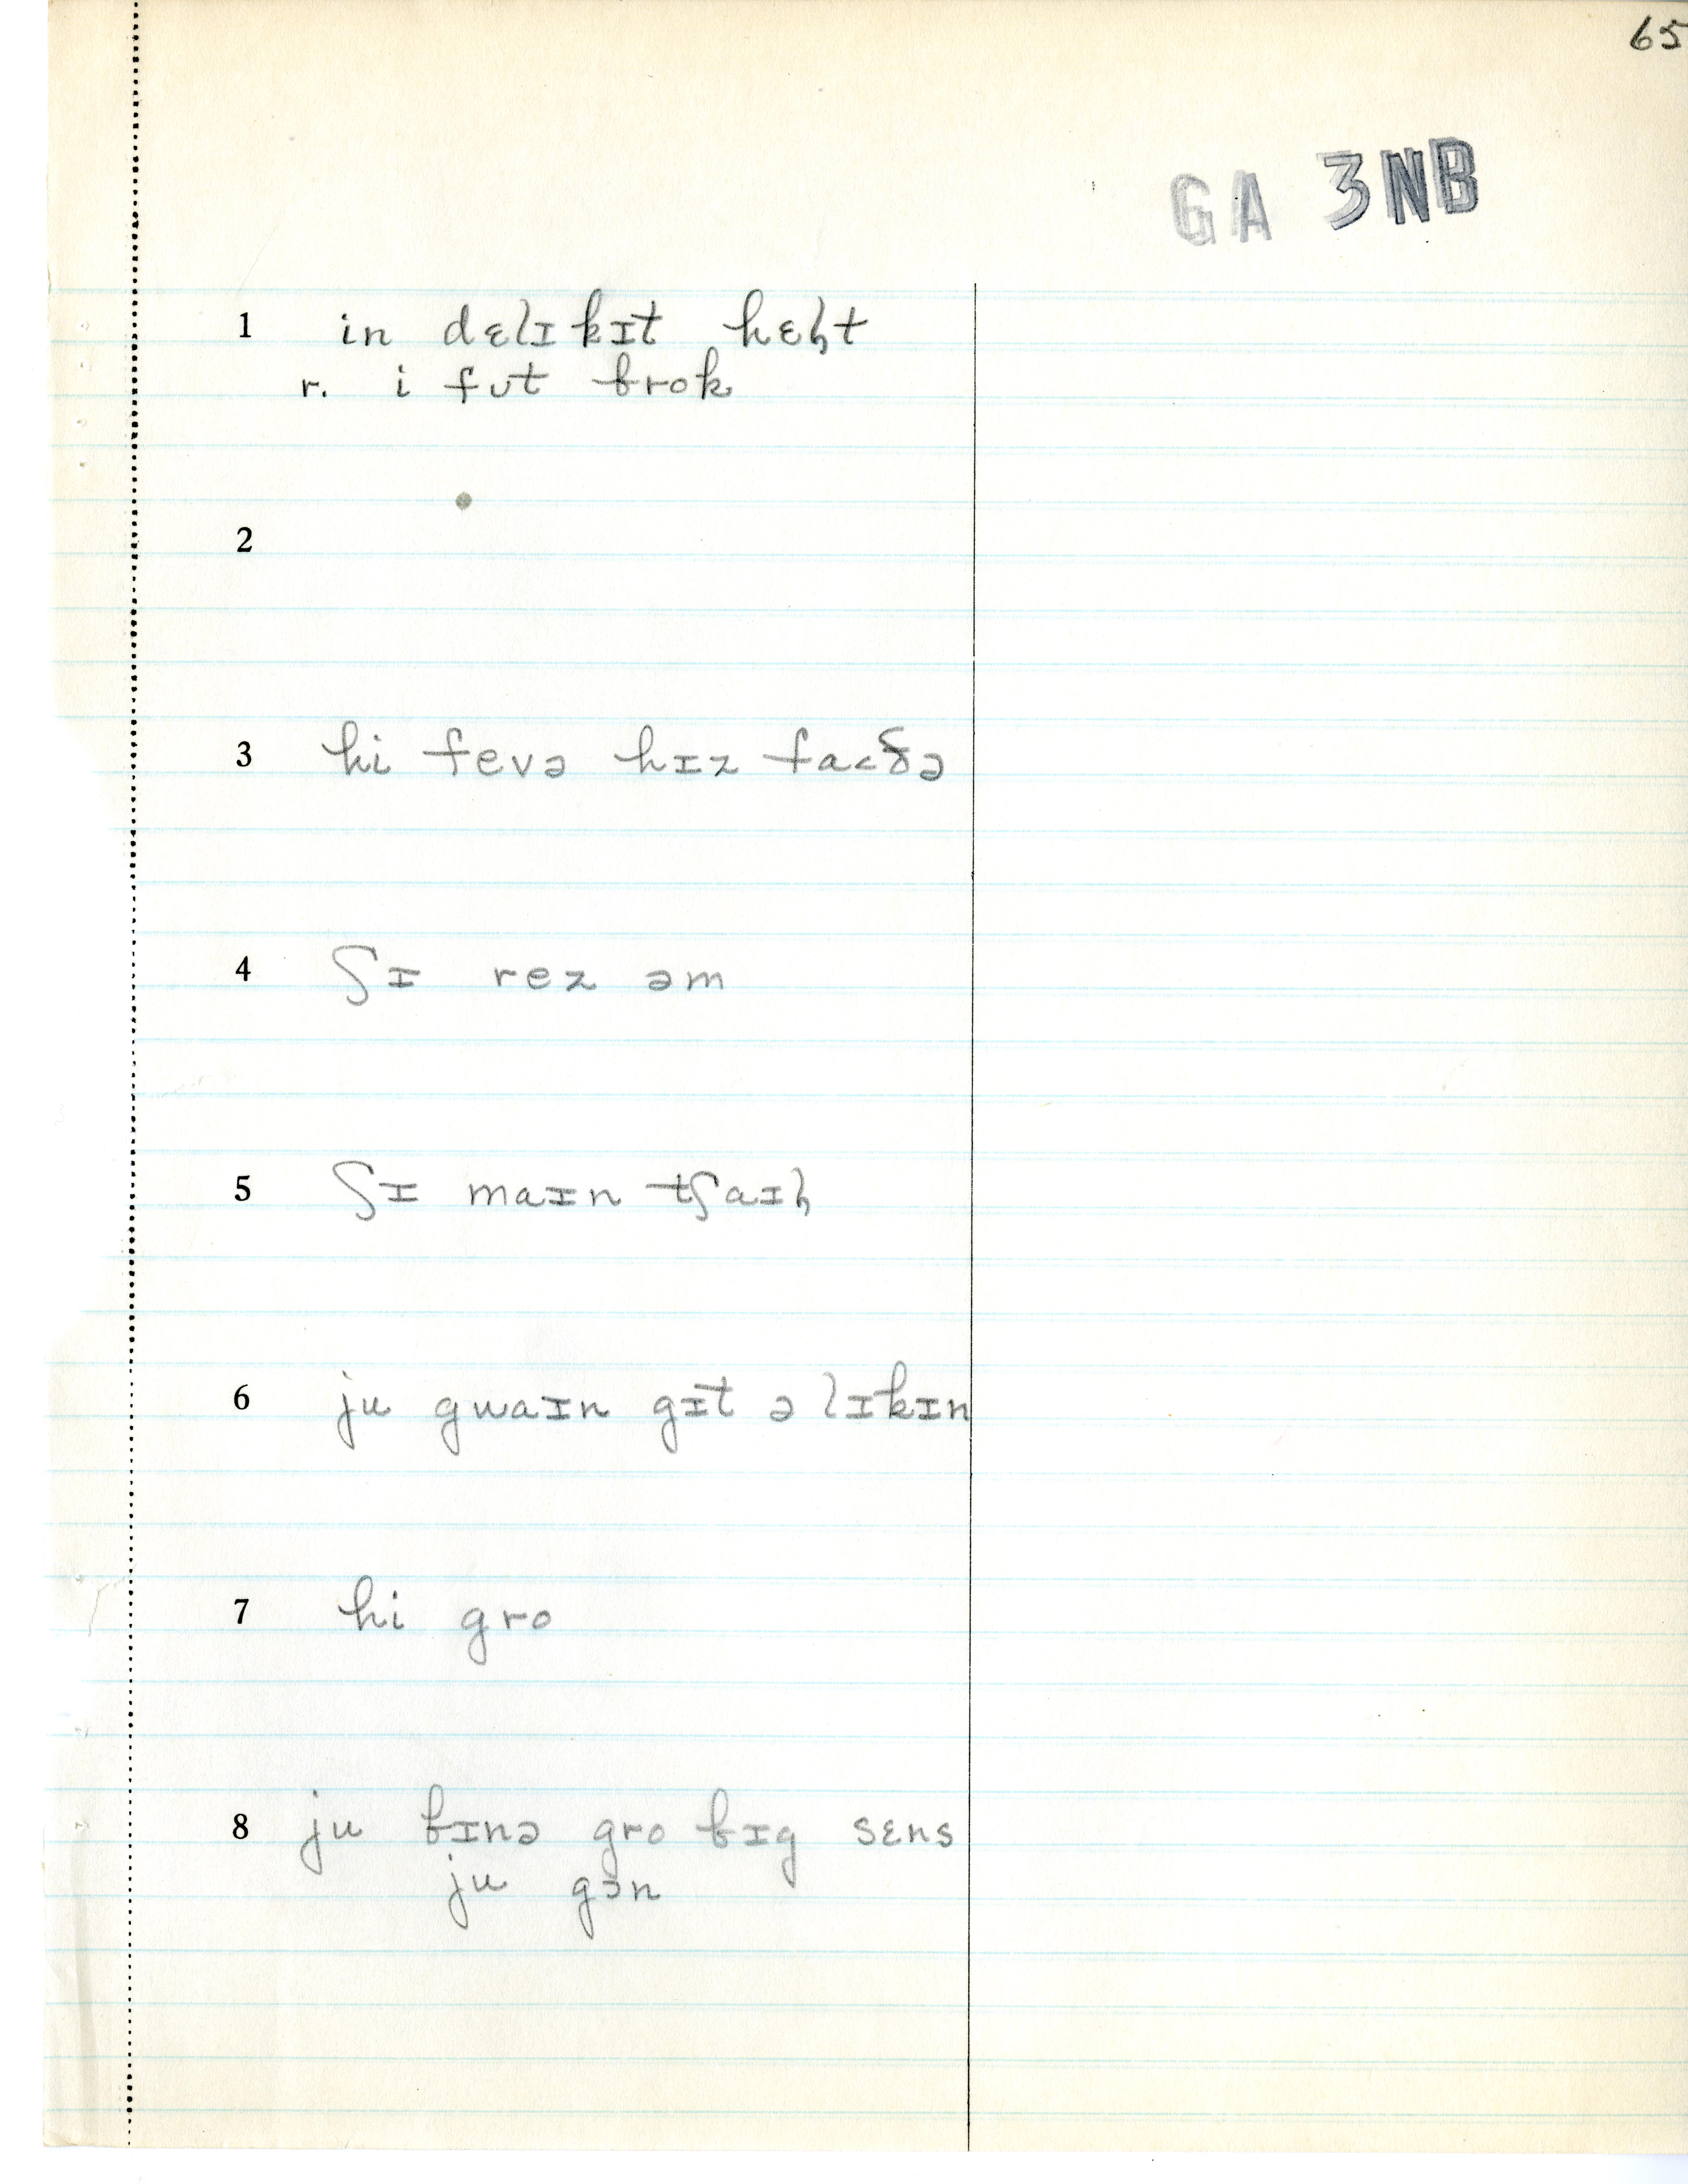 65
GA 3NB
1 in dɛlɪkɪt hɛɫt
r. i fʊt brok
2
3 hi fevə hɪz fa˂ðə
4 ʃɪ rez əm
5 ʃɪ maɪn tʃaɪɫ
6 ju gwaɪn gɪt ə lɪkɪn
7 hi gro
8 ju bɪnə gro bɪg sɛns
ju gɔn